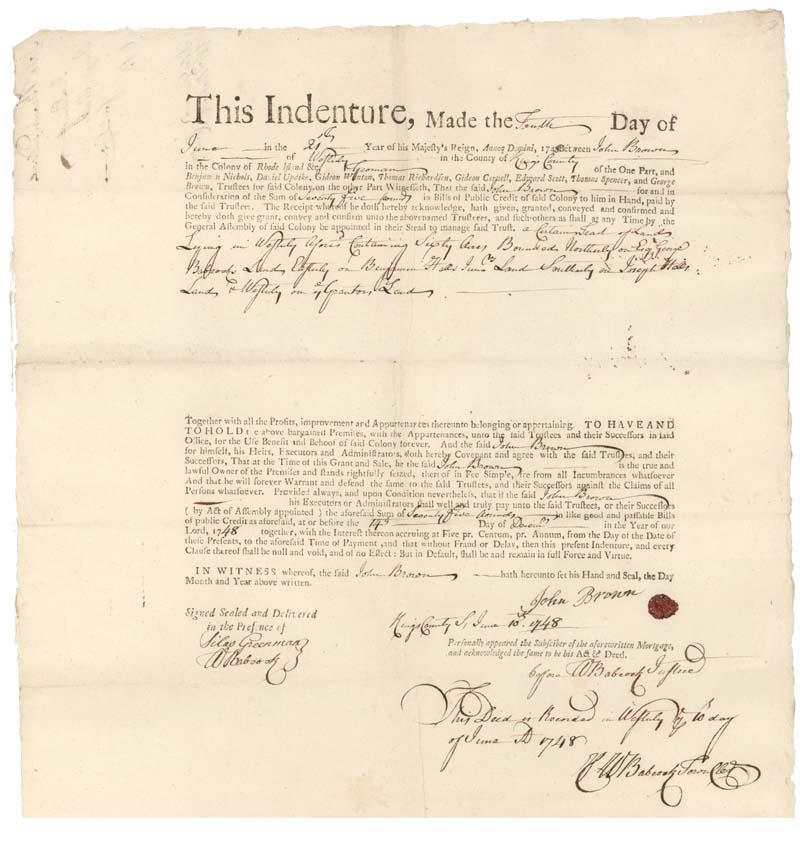 This Indenture, Made the Tenth Day of
June in the 21th Year of his Majesty's Reign, Annoq Domini, 174 Between John Brown
of Westerly in the County of Kings County
in the Colony of Rhode Island &c. Yeoman of the One Part, and
Benjamin Nichols, Daniel Updike, Gideon Wanton, Thomas Richardson, Gideon Cornell, Edward Scott, Thomas Spencer, and George
Brown, Trustees for said Colony, on the other Part Witnesseth, That the said John Brown for and in
Consideration of the Sum of Seventy five pounds in Bills of Public Credit of said Colony to him in Hand, paid by
the said Trustees. The Receipt whereof he doth hereby acknowledge, hath given, granted, conveyed and confirmed and
hereby doth give grant, convey and confirm unto the abovenamed Trustees, and such others as shall at any Time by the
General Assembly of said Colony be appointed in their Stead to manage said Trust. a Certain Tract of Land
Lying in Westerly afores'd Containing Sixty Acres Bounded Northerly on Esq'r George
Babcocks Land Easterly on Benjamin Halls Jun'r Land Southerly on Joseph Halls
Land & Westerly on y'e Grantors Land
Together with all the Profits, improvement and Appurtenances thereunto belonging or appertaining. TO HAVE AND
TO HOLD the above bargained Premises, with the Appurtenances, unto the said Trustees and their Successors in said
Office, for the Use Benefit and Behoof of said Colony forever. And the said John Brown
for himself, his Heirs, Executors and Administrators, doth hereby Covenant and agree with the said Trustees, and their
Successors, That at the Time of this Grant and Sale, he the said John Brown is the true and
lawful Owner of the Premises and stands rightfully seized, thereof in Fee Simple, are from all Incumbrances whatsoever
And that he will forever Warrant and defend the same to the said Trustees, and their Successors against the Claims of all
Persons whatsoever. Provided always, and upon Condition nevertheless, that if the said John Brown
his Executors or Administrators shall well and truly pay unto the said Trustees, or their Successors
( by Act of Assembly appointed ) the aforesaid Sum of Seventy five pounds in like good and passable Bills
of public Credit as aforesaid, at or before the 14th Day of Decemb'r in the Year of our
Lord, 1748 together, with the Interest thereon accruing at Five pr. Centum, pr. Annum, from the Day of the Date of
these Presents, to the aforesaid Time of Payment, and that without Fraud or Delay, then this present Indenture, and every
Clause thereof shall be null and void, and of no Effect: But in Default, shall be and remain in full Force and Virtue.
IN WITNESS whereof, the said John Brown hath hereunto set his Hand and Seal, the Day
Month and Year above written.
John Brown
Signed Sealed and Delivered
in the Presence of
Silas Greenman
W Babcock
Kings County Ss June 10th 1748
Personally appeared the Subscriber of the aforewritten Mortgage,
and acknowledged the same to be his Act & Deed.
before W Babcock Justice
This Deed is Recorded in Westerly y'e 10th day
of June AD 1748
W Babcock Town Clerk